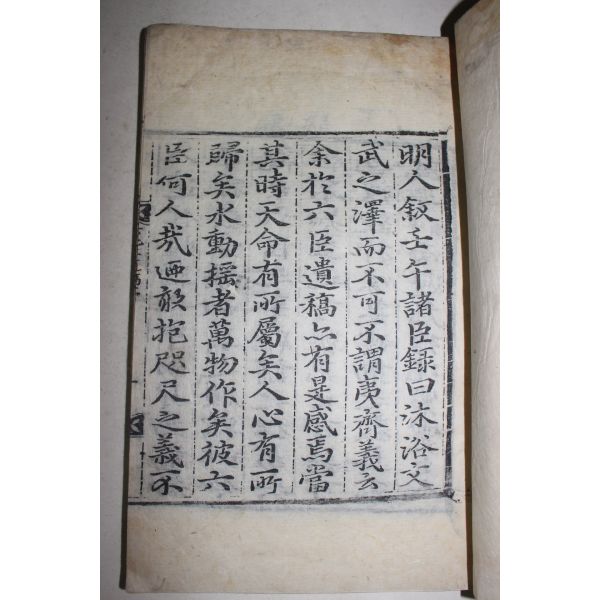 明人敘壬午諸臣錄曰沐浴文
武之澤而不可不謂夷齊義云
余於六臣遺稿亦有是感焉當
其時天命有所屬矣人心有所
歸矣水動搖者萬物作矣彼六
臣何人哉迺敢抱咫尺之義不